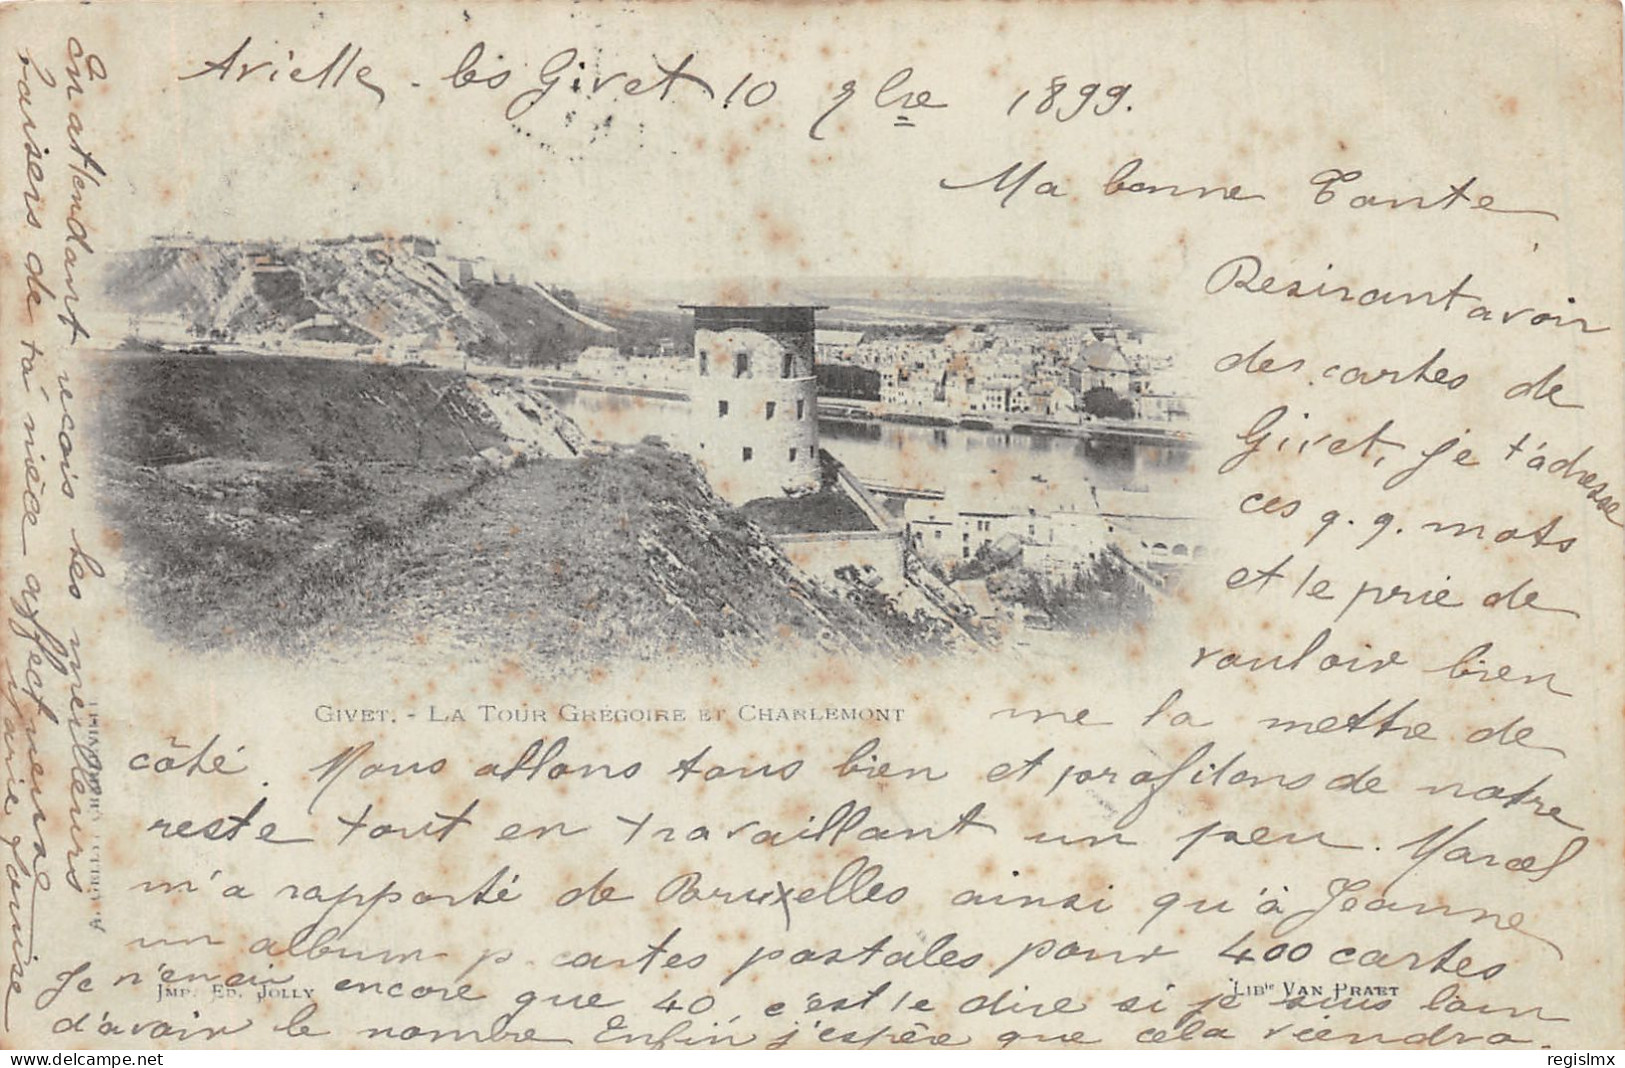 Arielle - les Givet 10 9bre 1899.
Ma bonne Tante
Desirant avoir
des cartes de
Givet, je t'adresse
ces q. q. mots
et te prie de
vouloir bien
me la mettre de
côté. Nous allons tous bien et profitons de notre
reste tout en travaillant un peu. Marcel
m'a rapporté de Bruxelles ainsi qu'à Jeanne
un album p. cartes postales pour 400 cartes
Je n'en ai encore que 40, c'est te dire si je suis loin
d'avoir le nombre Enfin j'espère que cela viendra.
En attendant reçois les meilleurs
baisers de ta nièce affectueuse
Marie Louise
GIVET. - LA TOUR GRÉGOIRE ET CHARLEMONT
IMP. ED. JOLLY
LIBie VAN PRAET
regislmx